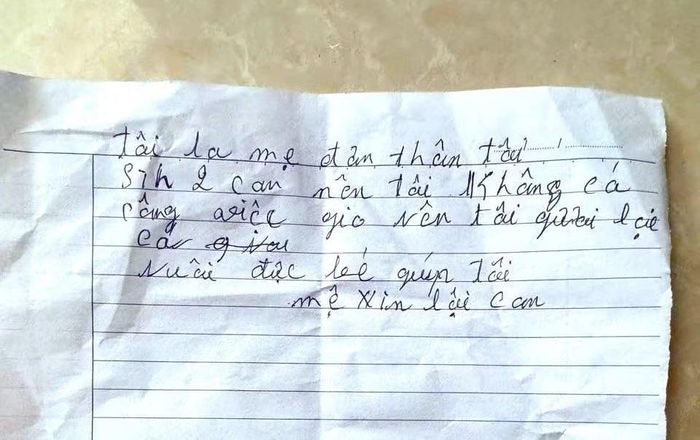 Tôi la mẹ đơn thân tôi
Sih 2 con nên tôi không có
công việc gio nên tôi gửi lại
có
nuôi được bé giúp tôi
mẹ xin lỗi con